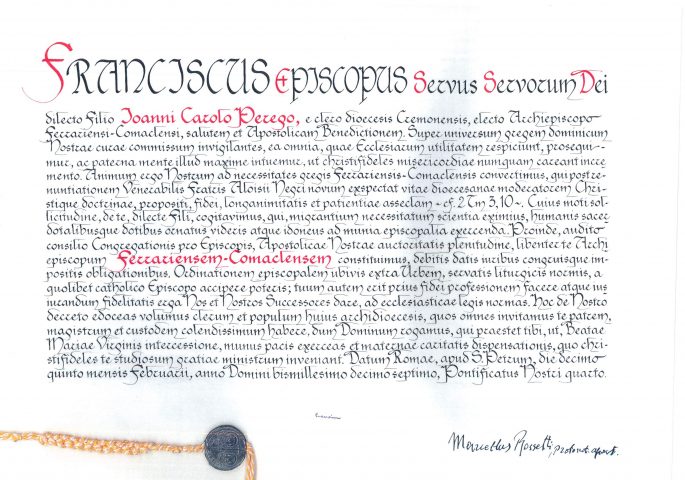 FRANCISCUS EPISCOPUS Servus Servorum Dei
dilecto Filio Ioanni Carolo Perego, e clero dioecesis Cremonensis, electo Archiepiscopo
Ferrariensi-Comaclensi, salutem et Apostolicam Benedictionem. Super universum gregem dominicum
Nostrae curae commissum invigilantes, ea omnia, quae Ecclesiarum utilitatem respiciunt, prosequi-
mur, ac paterna mente illud maxime intuemur, ut christifideles misericordiae numquam careant incre-
mento. Animum ergo Nostrum ad necessitates gregis Ferrariensis-Comaclensis convertimus, qui post re-
nuntiationem Venerabilis Fratris Aloisii Negri novum exspectat vitae dioecesanae moderatorem Chri-
stique doctrinae, propositi, fidei, longanimitatis et patientiae asseclam - cf. 2 Tm 3, 10 -. Cuius moti sol-
licitudine, de te, dilecte Fili, cogitavimus, qui, migrantium necessitatum scientia eximius, humanis sacer
dotalibusque dotibus ornatus videris atque idoneus ad munia episcopalia exercenda. Proinde, audito
consilio Congregationis pro Episcopis, Apostolicae Nostrae auctoritatis plenitudine, libenter te Archi
episcopum Ferrariensem-Comaclensem constituimus, debitis datis iuribus congruisque im-
positis obligationibus. Ordinationem episcopalem ubivis extra Urbem, servatis liturgicis normis, a
quolibet catholico Episcopo accipere poteris; tuum autem erit prius fidei professionem facere atque ius
iurandum fidelitatis erga Nos et Nostros Successores dare, ad ecclesiasticae legis normas. Hoc de Nostro
decreto edoceas volumus clerum et populum huius archidioecesis, quos omnes invitamus te patrem,
magistrum et custodem colendissimum habere, dum Dominum rogamus, qui praestet tibi, ut, Beatae
Mariae Virginis intercessione, munus pacis exerceas et maternae caritatis dispensationis, quo chri-
stifideles te studiosum gratiae ministrum inveniant. Datum Romae, apud S. Petrum, die decimo
quinto mensis Februarii, anno Domini bismillesimo decimo septimo, Pontificatus Nostri quarto.
Marcellus Rossetti, protonot. apost.